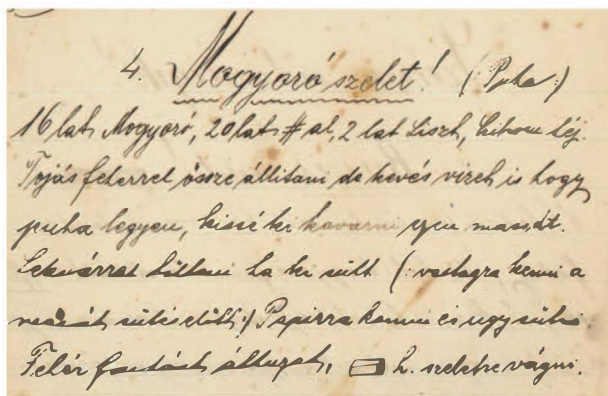 4. Mogyoró szelet! (Puha:)
16 lat Mogyoró, 20 lat # al, 2 lat Liszt,
Tojás feherrel össze állitani de kevés vizet is hogy
puha legyen, kissé ki kavarni ezen massát.
Lekvárral tölteni ha ki sült (: vastagra kenni a
massát sütés előtt :) Papirra kenni és ugy sütni.
Fehér huzat, 2. szeletre vágni.